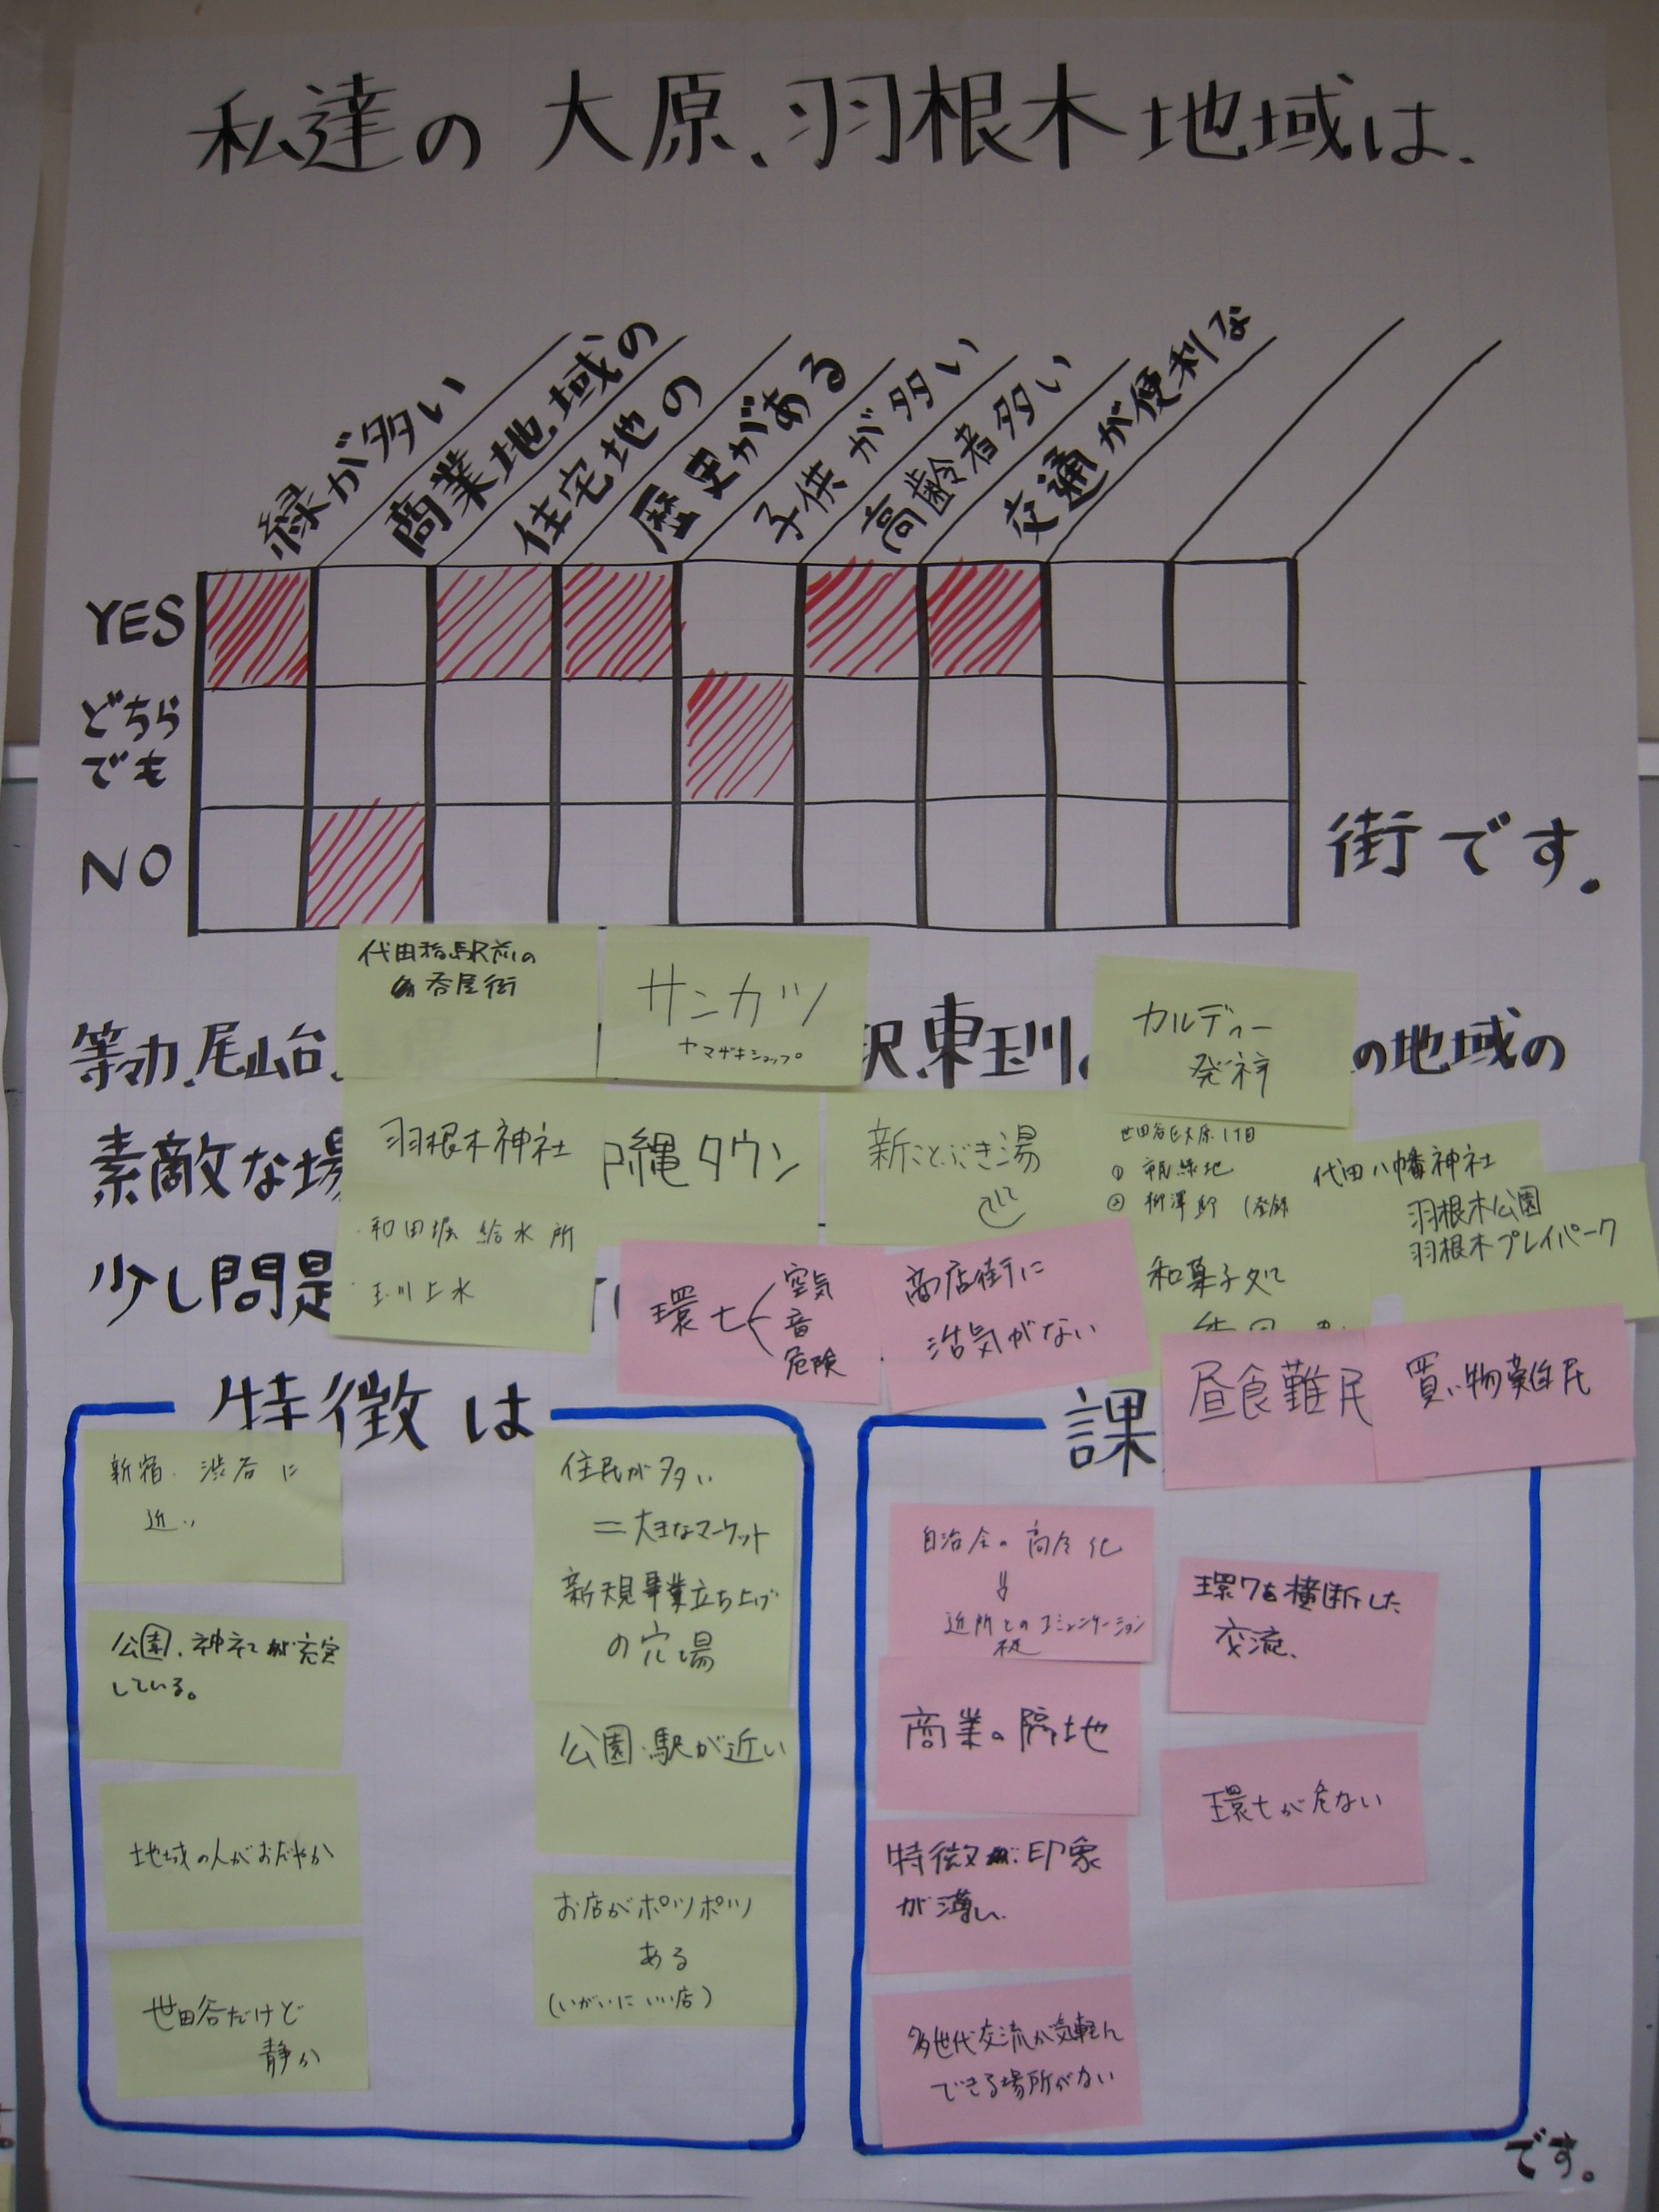 私達の 大原、羽根木 地域は、
緑が多い
商業地域の
住宅地の
歴史がある
子供が多い
高齢者多い
交通が便利な
YES
どちら
でも
NO
街です。
代田橋駅前の
呑屋街
サンカツ
ヤマザキショップ
カルディー
発祥
等々力、尾山台、
駅、東玉川、
の地域の
素敵な場
羽根木神社
縄タウン
新ことぶき湯
世田谷区大原1丁目
① 市民緑地
② 柳澤邸 (登録
代田八幡神社
羽根木公園
羽根木プレイパーク
少し問題
・和田堀 給水所
・玉川上水
環七 空気
音
危険
商店街に
活気がない
和菓子
昼食難民
買い物難民
特徴は
新宿、渋谷に
近い
公園、神社が充実
している。
地域の人がおだやか
世田谷だけど
静か
住民が多い
=大きなマーケット
新規事業立ち上げ
の穴場
公園・駅が近い
お店がポツポツ
ある
(いがいにいい店)
課
自治会の高令化
⇓
近所とのコミュニケーション
環7を横断した
交流、
商業の隔地
環七が危ない
特徴が、印象
が薄い、
多世代交流が気軽に
できる場所がない
です。